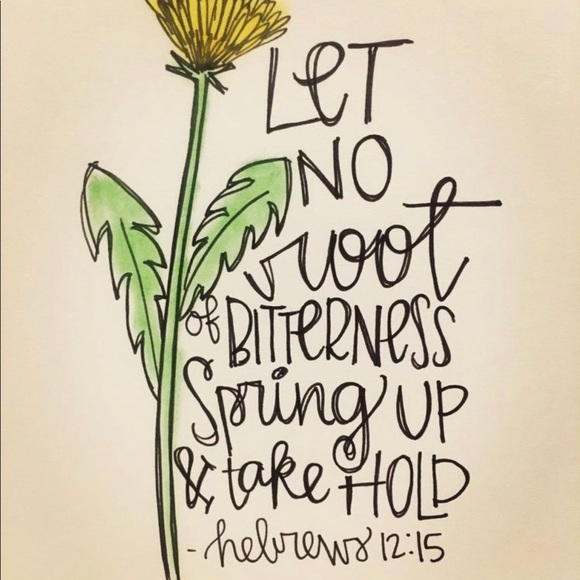 LET
NO
root
of BITTERNESS
Spring UP
& take HOLD
- hebrews 12:15